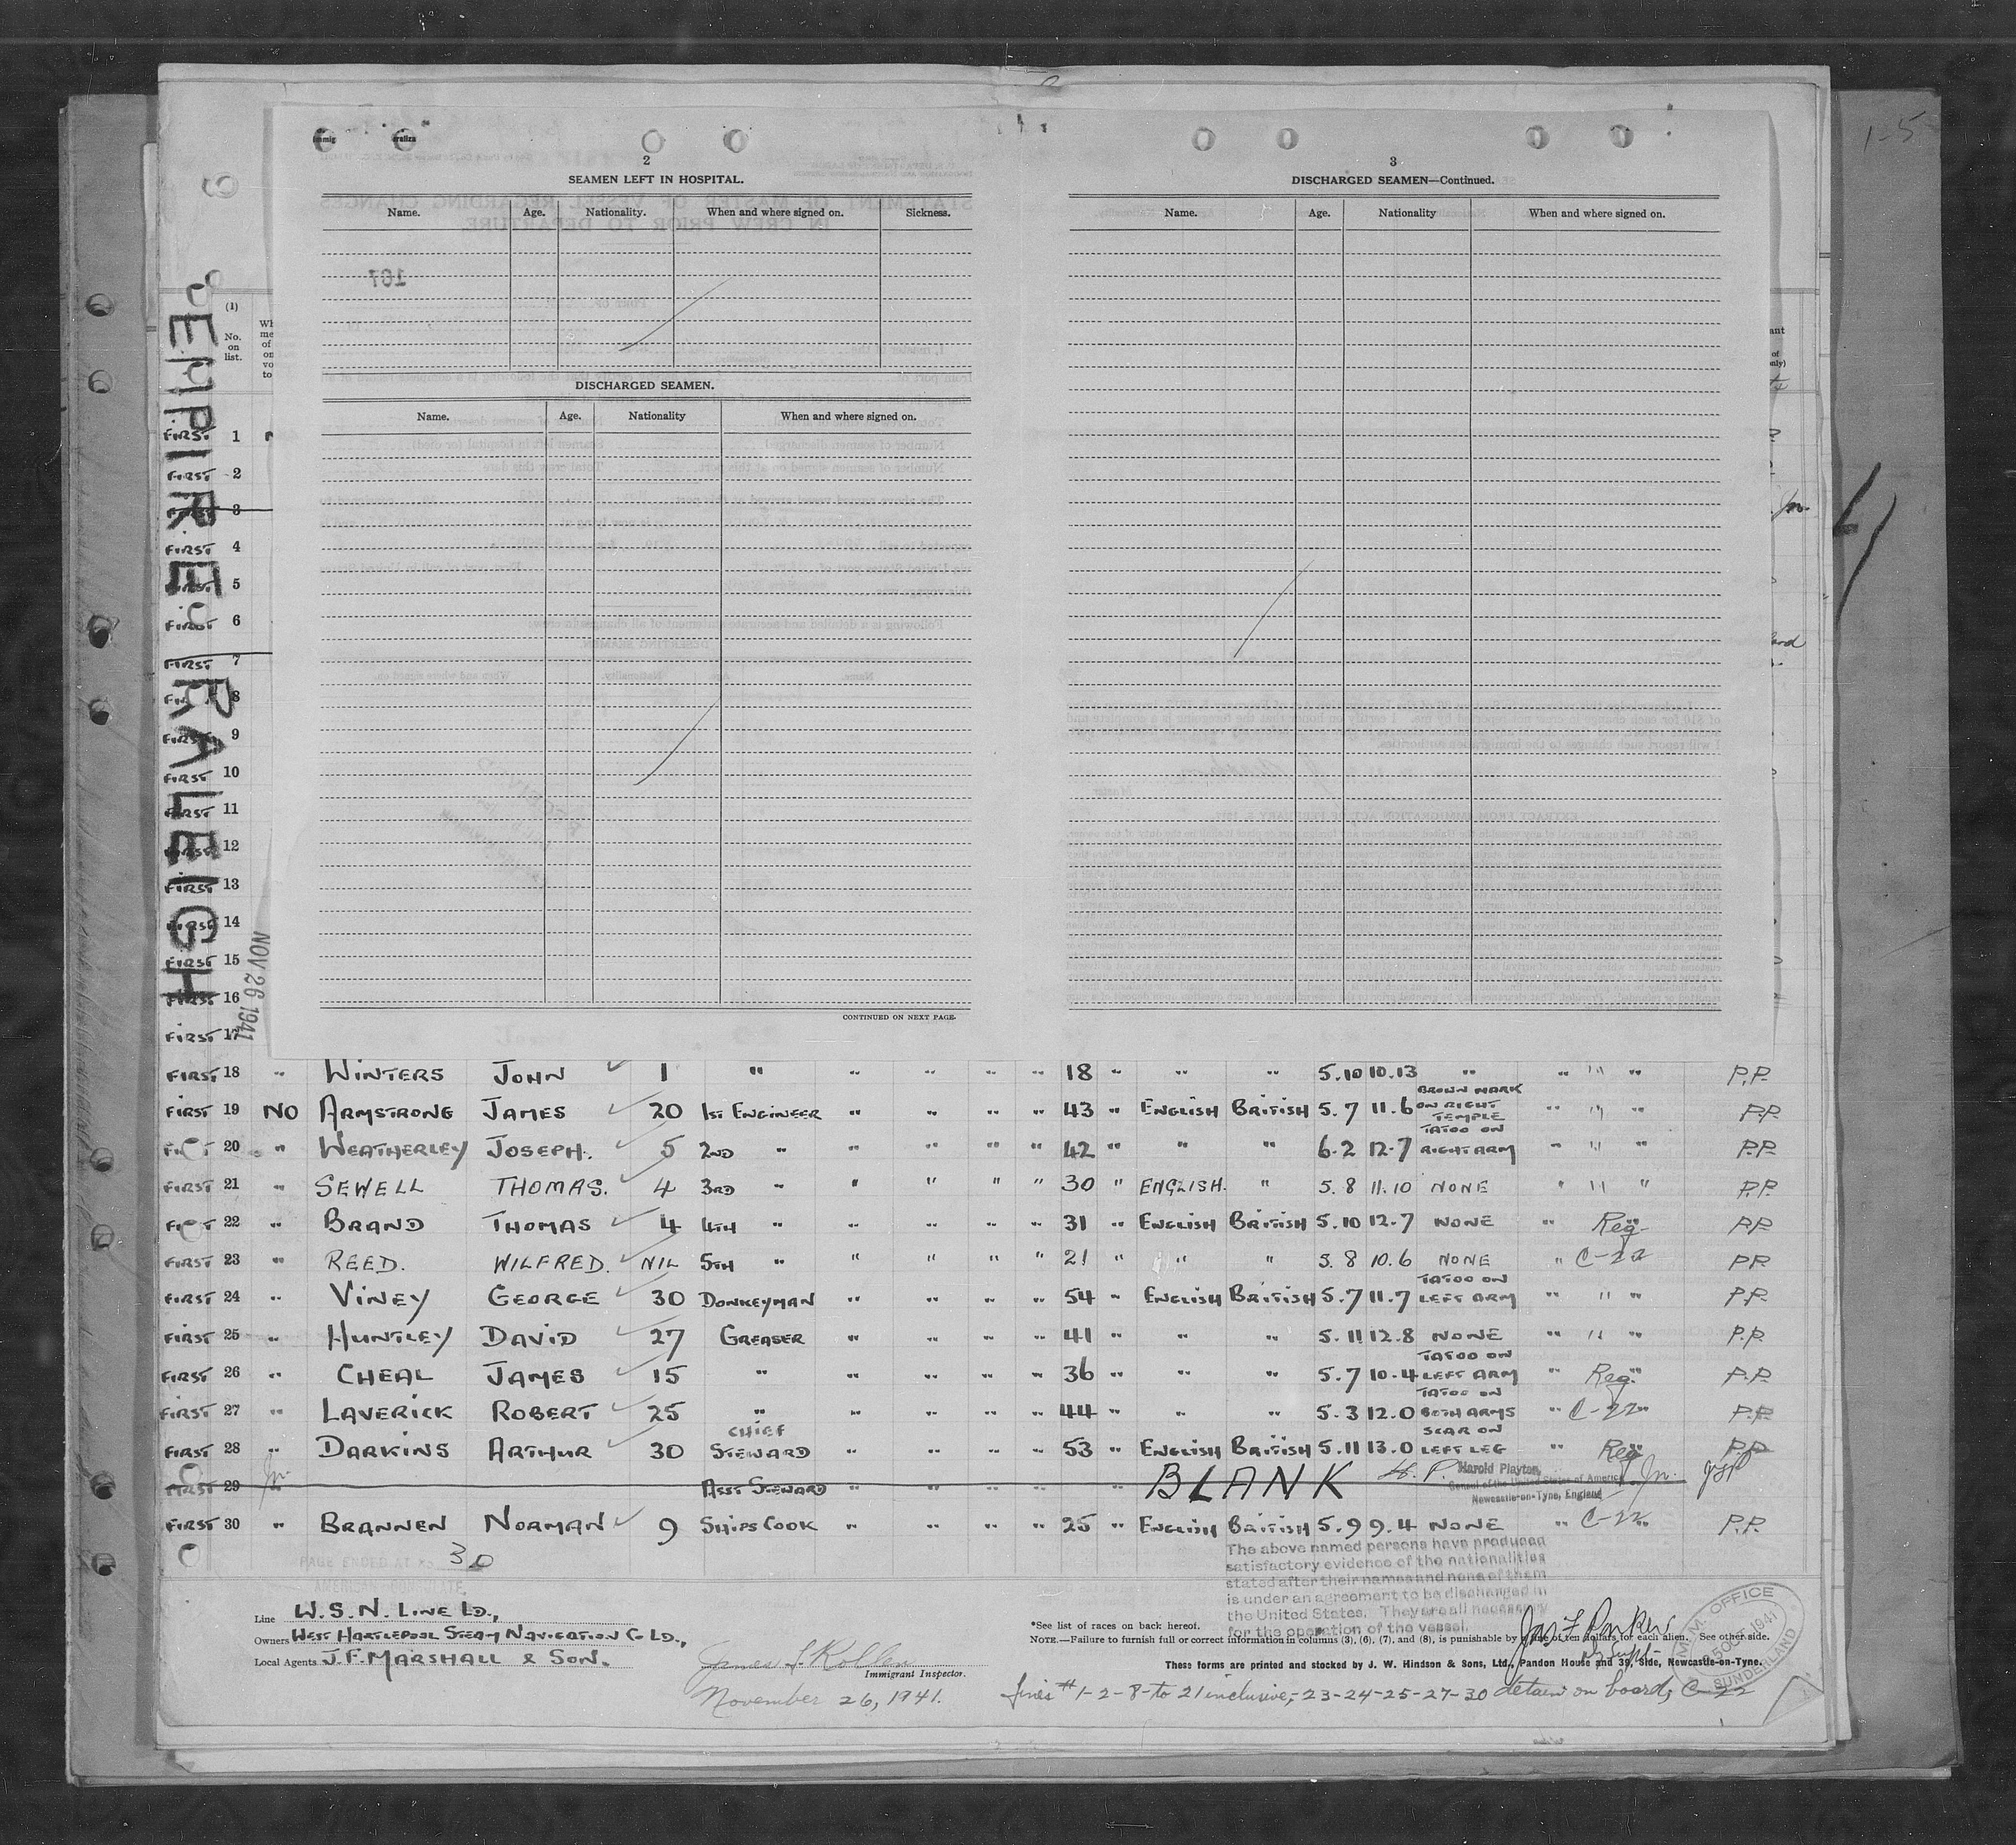 1-5
2
SEAMEN LEFT IN HOSPITAL.
Name. Age. Nationality. When and where signed on. Sickness.
DISCHARGED SEAMEN.
Name. Age. Nationality When and where signed on.
CONTINUED ON NEXT PAGE.
3
DISCHARGED SEAMEN—Continued.
Name. Age. Nationality When and where signed on.
EMPIRE RALEIGH
NOV 26 1941
(1)
No. on list.
FIRST 1
FIRST 2
FIRST 3
FIRST 4
FIRST 5
FIRST 6
FIRST 7
FIRST 8
FIRST 9
FIRST 10
FIRST 11
FIRST 12
FIRST 13
FIRST 14
FIRST 15
FIRST 16
FIRST 17
FIRST 18 " WINTERS JOHN 1 " " " " " 18 " " " 5.10 10.13 " " " " P.P.
FIRST 19 NO ARMSTRONG JAMES 20 1ST ENGINEER " " " " 43 " ENGLISH BRITISH 5.7 11.6 BROWN MARK ON RIGHT TEMPLE " " " P.P.
FIRST 20 " WEATHERLEY JOSEPH. 5 2ND " " " " " 42 " " " 6.2 12.7 TATOO ON RIGHT ARM " " " P.P.
FIRST 21 " SEWELL THOMAS. 4 3RD " " " " " 30 " ENGLISH. " 5.8 11.10 NONE " " " P.P.
FIRST 22 " BRAND THOMAS 4 4TH " " " " " 31 " ENGLISH BRITISH 5.10 12.7 NONE " Reg. P.P.
FIRST 23 " REED. WILFRED. NIL 5TH " " " " " 21 " " " 5.8 10.6 NONE " C-22 P.P.
FIRST 24 " VINEY GEORGE 30 DONKEYMAN " " " " 54 " ENGLISH BRITISH 5.7 11.7 TATOO ON LEFT ARM " " " P.P.
FIRST 25 " HUNTLEY DAVID 27 GREASER " " " " 41 " " " 5.11 12.8 NONE " " " P.P.
FIRST 26 " CHEAL JAMES 15 " " " " " 36 " " " 5.7 10.4 TATOO ON LEFT ARM " Reg. P.P.
FIRST 27 " LAVERICK ROBERT 25 " " " " " 44 " " " 5.3 12.0 TATOO ON BOTH ARMS " C-22 P.P.
FIRST 28 " DARKINS ARTHUR 30 CHIEF STEWARD " " " " 53 " ENGLISH BRITISH 5.11 13.0 SCAR ON LEFT LEG " Reg P.P.
FIRST 29 " ASST STEWARD " " " " BLANK H. P. Harold Playton,
Consul of the United States of America
Newcastle-on-Tyne, England
FIRST 30 " BRANNEN NORMAN 9 SHIPS COOK " " " " 25 " ENGLISH BRITISH 5.9 9.4 NONE " C-22 P.P.
PAGE ENDED AT No. 30
AMERICAN CONSULATE,
The above named persons have produced
satisfactory evidence of the nationalities
stated after their names and none of them
is under an agreement to be discharged in
the United States. They are all necessary
for the operation of the vessel.
Line W.S.N. LINE LD.,
Owners WEST HARTLEPOOL STEAM NAVIGATION CO LD.,
Local Agents J.F. MARSHALL & SON.
Immigrant Inspector.
November 26, 1941.
*See list of races on back hereof.
NOTE.—Failure to furnish full or correct information in columns (3), (6), (7), and (8), is punishable by a fine of ten dollars for each alien. See other side.
These forms are printed and stocked by J. W. Hindson & Sons, Ltd., Pandon House and 39, Side, Newcastle-on-Tyne.
Jas F Parker
M.M. OFFICE
OCT 1941
SUNDERLAND
lines # 1-2-8-to 21 inclusive,-23-24-25-27-30 detain on board, C-22